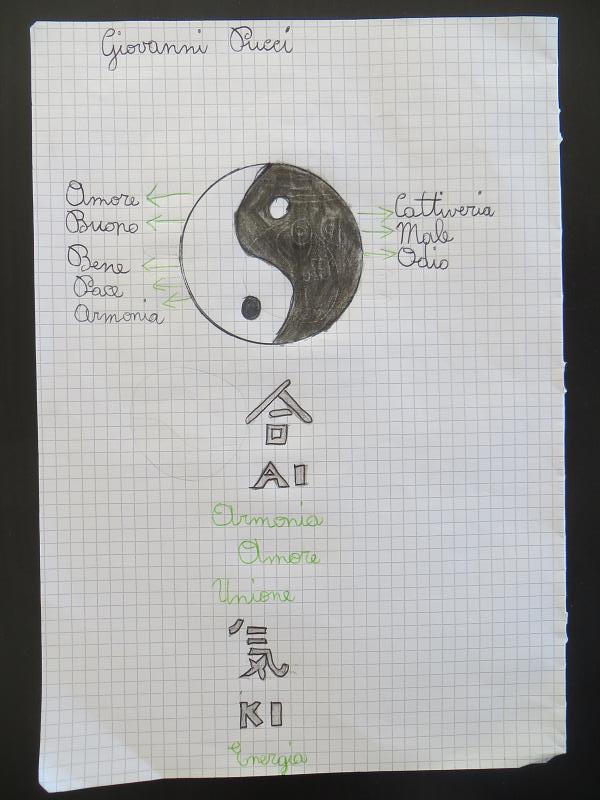 Giovanni Pucci
Amore
Buono
Bene
Pace
Armonia
Cattiveria
Male
Odio
合
AI
Armonia
Amore
Unione
気
KI
Energia